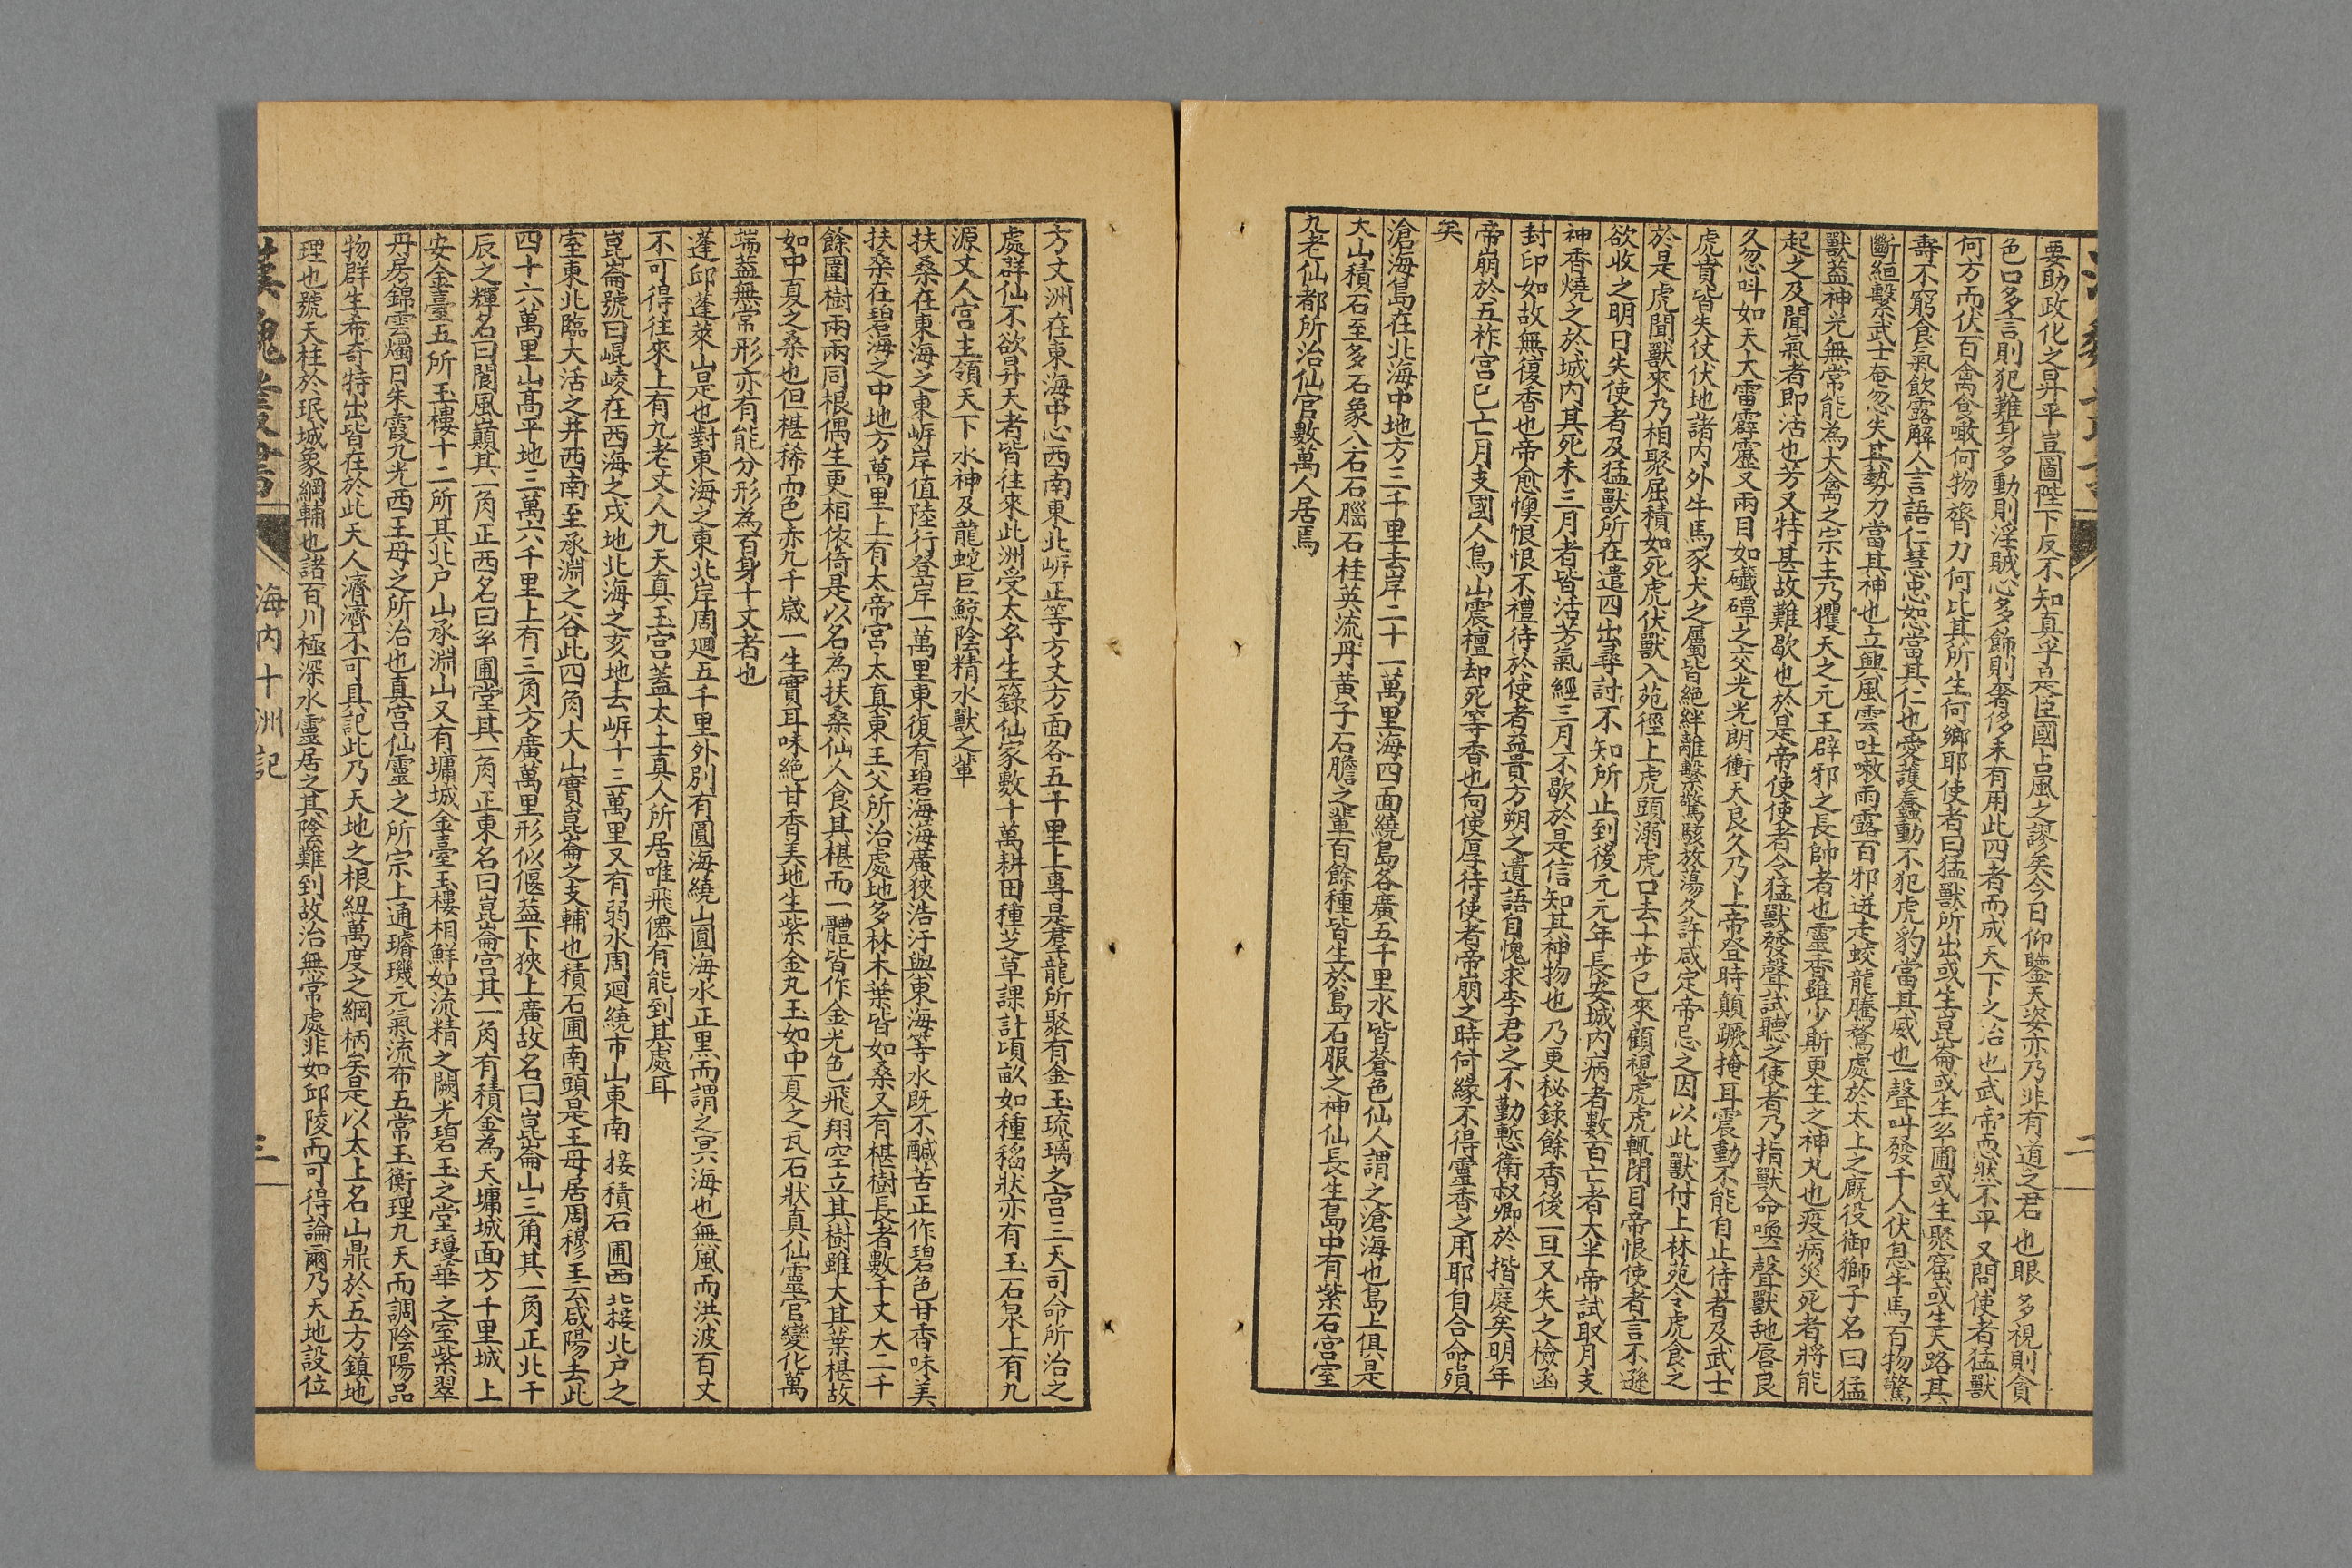 要助政化之昇平豈圖陛下反不知真乎是臣國占風之謬矣今日仰鑒天姿亦乃非有道之君也眼多視則貪
色口多言則犯難身多動則淫賊心多飾則奢侈未有用此四者而成天下之治也武帝恧然不平又問使者猛獸
何方而伏百禽食噉何物膂力何比其所生何鄉耶使者曰猛獸所出或生崑崙或生玄圃或生聚窟或生天路其
壽不窮食氣飲露解人言語仁慧忠恕當其仁也愛護蠢動不犯虎豹當其威也一聲叫發千人伏息牛馬百物驚
斷絙繫武士奄忽失其勢力當其神也立興風雲吐嗽雨露百邪迸走蛟龍騰鶩處於太上之厩役御獅子名曰猛
獸蓋神光無常能為大禽之宗主乃玃天之元王辟邪之長帥者也靈香雖少斯更生之神丸也疫病災死者將能
起之及聞氣者即活也芳又特甚故難歇也於是帝使使者令猛獸發聲試聽之使者乃指獸命喚一聲獸䑛唇良
久忽呌如天大雷霹靂又兩目如礒磹之交光光朗衝天良久乃止帝登時顛蹶掩耳震動不能自止侍者及武士
虎賁皆失仗伏地諸內外牛馬豕犬之屬皆絕絆離繫驚駭放蕩久許咸定帝忌之因以此獸付上林苑令虎食之
於是虎聞獸來乃相聚屈積如死虎伏獸入苑徑上虎頭溺虎口去十步已來顧視虎虎輒閉目帝恨使者言不遜
欲收之明日失使者及猛獸所在遣四出尋討不知所止到後元元年長安城內病者數百亡者大半帝試取月支
神香燒之於城內其死未三月者皆活芳氣經三月不歇於是信知其神物也乃更秘錄餘香後一旦又失之檢函
封印如故無復香也帝愈懊恨恨不禮待於使者益貴方朔之遺語自愧求李君之不勤慙衛叔卿於揩庭矣明年
帝崩於五柞宮已亡月支國人鳥山震檀却死等香也向使厚待使者帝崩之時何緣不得靈香之用耶自合命殞
矣
滄海島在北海中地方三千里去岸二十一萬里海四面繞島各廣五千里水皆蒼色仙人謂之滄海也島上俱是
大山積石至多石象八石石腦石桂英流丹黄子石膽之輩百餘種皆生於島石服之神仙長生島中有紫石宮室
九老仙都所治仙官數萬人居焉
二
方丈洲在東海中心西南東北岸正等方丈方面各五千里上專是羣龍所聚有金玉琉璃之宮三天司命所治之
處群仙不欲昇天者皆往來此洲受太玄生籙仙家數十萬耕田種芝草課計頃畝如種稻狀亦有玉石泉上有九
源丈人宮主領天下水神及龍蛇巨鯨陰精水獸之輩
扶桑在東海之東岸岸值陸行登岸一萬里東復有碧海海廣狹浩汗與東海等水既不鹹苦正作碧色甘香味美
扶桑在碧海之中地方萬里上有太帝宮太真東王父所治處地多林木葉皆如桑又有椹樹長者數千丈大二千
餘圍樹兩兩同根偶生更相依倚是以名為扶桑仙人食其椹而一體皆作金光色飛翔空立其樹雖大其葉椹故
如中夏之桑也但椹稀而色赤九千嵗一生實耳味絕甘香美地生紫金丸玉如中夏之瓦石狀真仙靈官變化萬
端蓋無常形亦有能分形為百身十丈者也
蓬邱蓬萊山是也對東海之東北岸周廻五千里外別有圓海繞山圓海水正黑而謂之冥海也無風而洪波百丈
不可得往來上有九老丈人九天真王宮蓋太上真人所居唯飛僊有能到其處耳
崑崙號曰崐崚在西海之戌地北海之亥地去岸十三萬里又有弱水周廻繞帀山東南接積石圃西北接北户之
室東北臨大活之井西南至承淵之谷此四角大山實崑崙之支輔也積石圃南頭是王母居周穆王云咸陽去此
四十六萬里山高平地三萬六千里上有三角方廣萬里形似偃葢下狹上廣故名曰崑崙山三角其一角正北干
辰之輝名曰閬風巔其一角正西名曰玄圃堂其一角正東名曰崑崙宮其一角有積金為天墉城面方千里城上
安金臺五所玉樓十二所其北户山承淵山又有墉城金臺玉樓相鮮如流精之闕光碧玉之堂瓊華之室紫翠
丹房錦雲燭日朱霞九光西王母之所治也真宮仙靈之所宗上通璿璣元氣流布五常玉衡理九天而調陰陽品
物群生希奇特出皆在於此天人濟濟不可具記此乃天地之根紐萬度之綱柄矣是以太上名山鼎於五方鎮地
理也號天柱於珉城象綱輔也諸百川極深水靈居之其陰難到故治無常處非如邱陵而可得論爾乃天地設位
漢魏叢書
海內十洲記
三